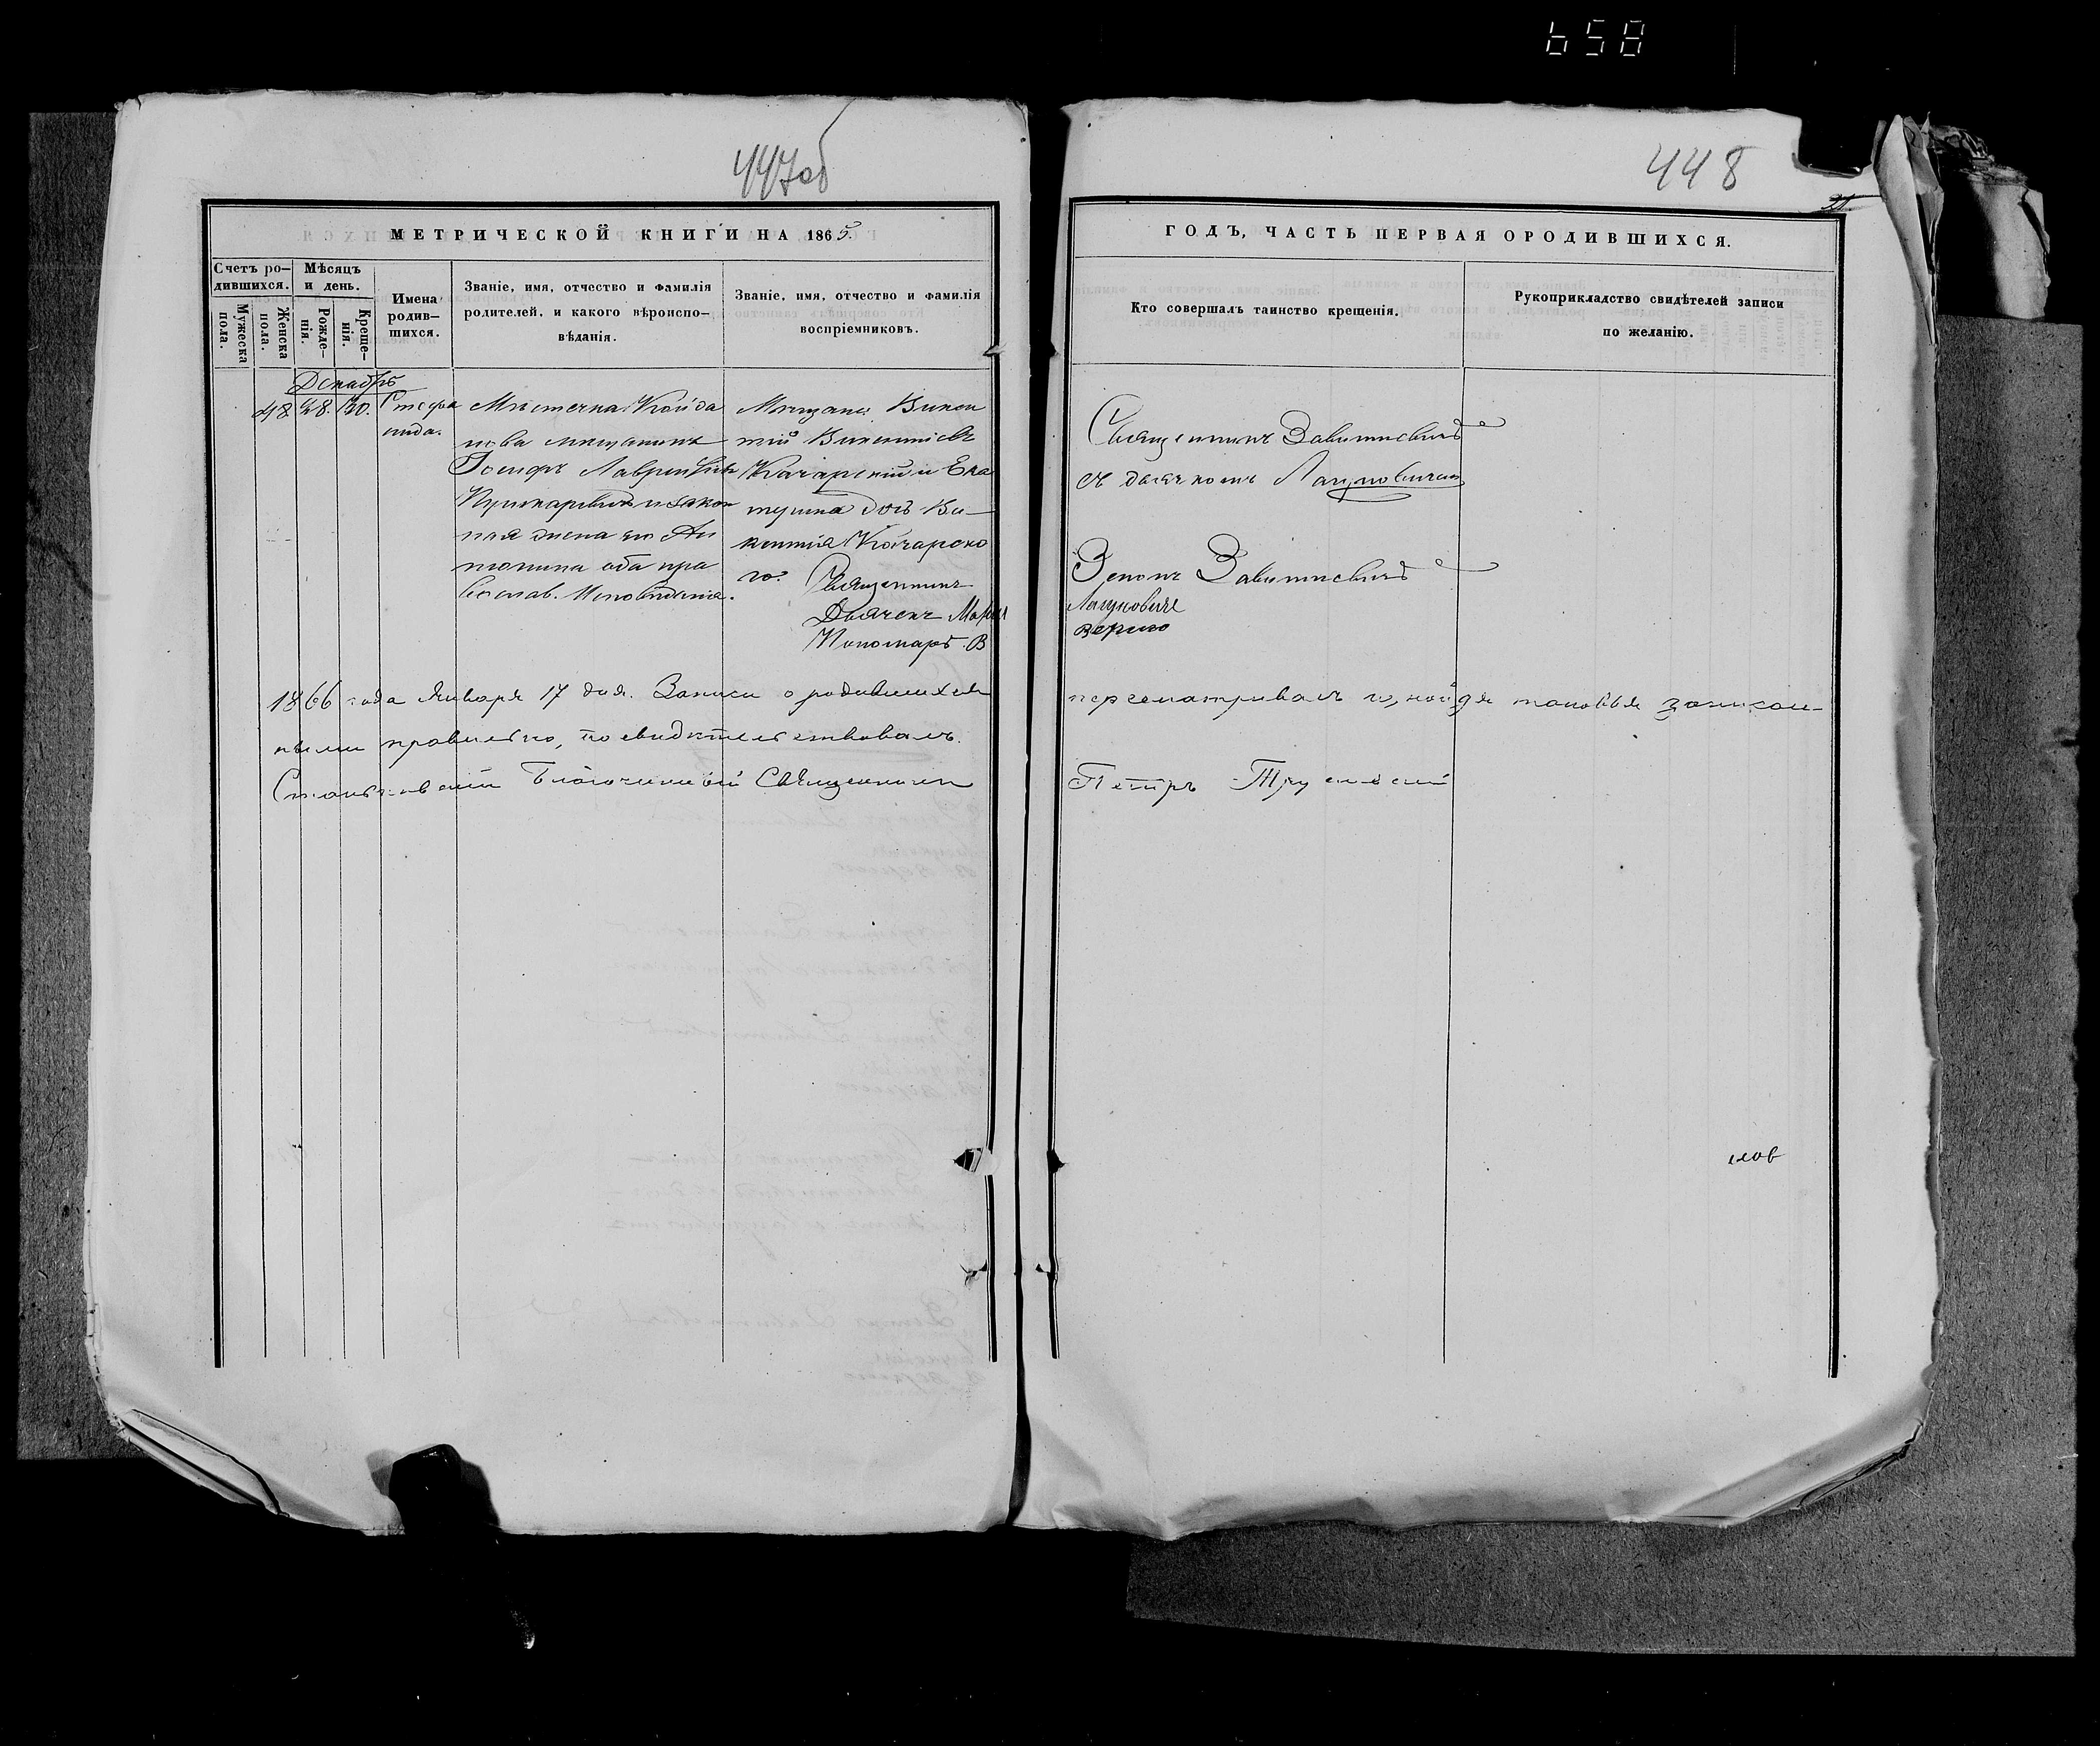 658
447об
448
МЕТРИЧЕСКОЙ КНИГИ НА 1865.
ГОДЪ, ЧАСТЬ ПЕРВАЯ О РОДИВШИХСЯ.
Счетъ ро-
дившихся.
Мужеска
пола.
Женска
пола.
Мѣсяцъ
и день.
Рожде-
нія.
Креще-
нія.
Имена
родив-
шихся.
Званіе, имя, отчество и фамилія
родителей, и какого вѣроиспо-
вѣданія.
Званіе, имя, отчество и фамилія
воспріемниковъ.
Кто совершалъ таинство крещенія.
Рукоприкладство свидѣтелей записи
по желанію.
Декабрь
48. 28. 30.
Стефа
нида.
Мѣстечка Койда
нова мѣщанинъ
Іосифъ Лаврентіевъ
Пушкаревичъ и закон
ная жена его Ан
тонина оба пра
вослав. Исповѣданія.
Мѣщане Викен
тій Викентіевъ
Качарскій и Ека
терина дочь Ви-
кентія Качарска
го.
Священникъ
Дьячекъ
Пономарь В
Священникъ Завитневичъ
съ дьячкомъ Лагуновичемъ
Зенонъ Завитневичъ
Лагуновичъ
1866 года Января 17 дня. Записи о родившихся пересматривалъ и, найдя таковыя записан-
ными правильно, посвидѣтельствовалъ.
Благочинный Священникъ Петръ